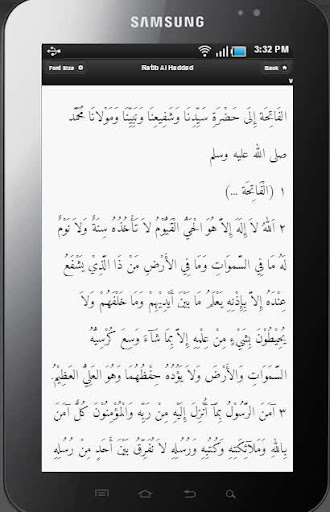 SAMSUNG
3:32 PM
Font Size
Ratib Al Haddad
Back
الفَاتِحَة إِلَى حَضْرَةِ سَيِّدِنَا وَشَفِيعِنَا وَنَبِيِّنَا وَمَوْلَانَا مُحَمَّد
صلى الله عليه وسلم
١ (الْفَاتِحَة ...)
٢ اَللهُ لاَ إِلَهَ إِلاَّ هُوَ الْحَيُّ الْقَيُّومُ لاَ تَأْخُذُهُ سِنَةٌ وَلاَ نَوْمٌ
لَهُ مَا فِي السَّموَاتِ وَمَا فِي الأَرْضِ مَنْ ذَا الَّذِيْ يَشْفَعُ
عِنْدَهُ إِلاَّ بِإِذْنِهِ يَعْلَمُ مَا بَيْنَ أَيْدِيْهِمْ وَمَا خَلْفَهُمْ وَلاَ
يُحِيْطُوْنَ بِشَيْءٍ مِنْ عِلْمِهِ إِلاَّ بِمَا شَآءَ وَسِعَ كُرْسِيُّهُ
السَّمَوَاتِ وَالأَرْضَ وَلاَ يَؤُدُهُ حِفْظُهُمَا وَهُوَ العَلِيُّ العَظِيْمُ.
٣ آمَنَ الرَّسُوْلُ بِمَا أُنْزِلَ إِلَيْهِ مِنْ رَبِّهِ وَالْمُؤْمِنُوْنَ كُلٌّ آمَنَ
بِاللهِ وَمَلاَئِكَتِهِ وَكُتُبِهِ وَرُسُلِهِ لاَ نُفَرِّقُ بَيْنَ أَحَدٍ مِنْ رُسُلِهِ